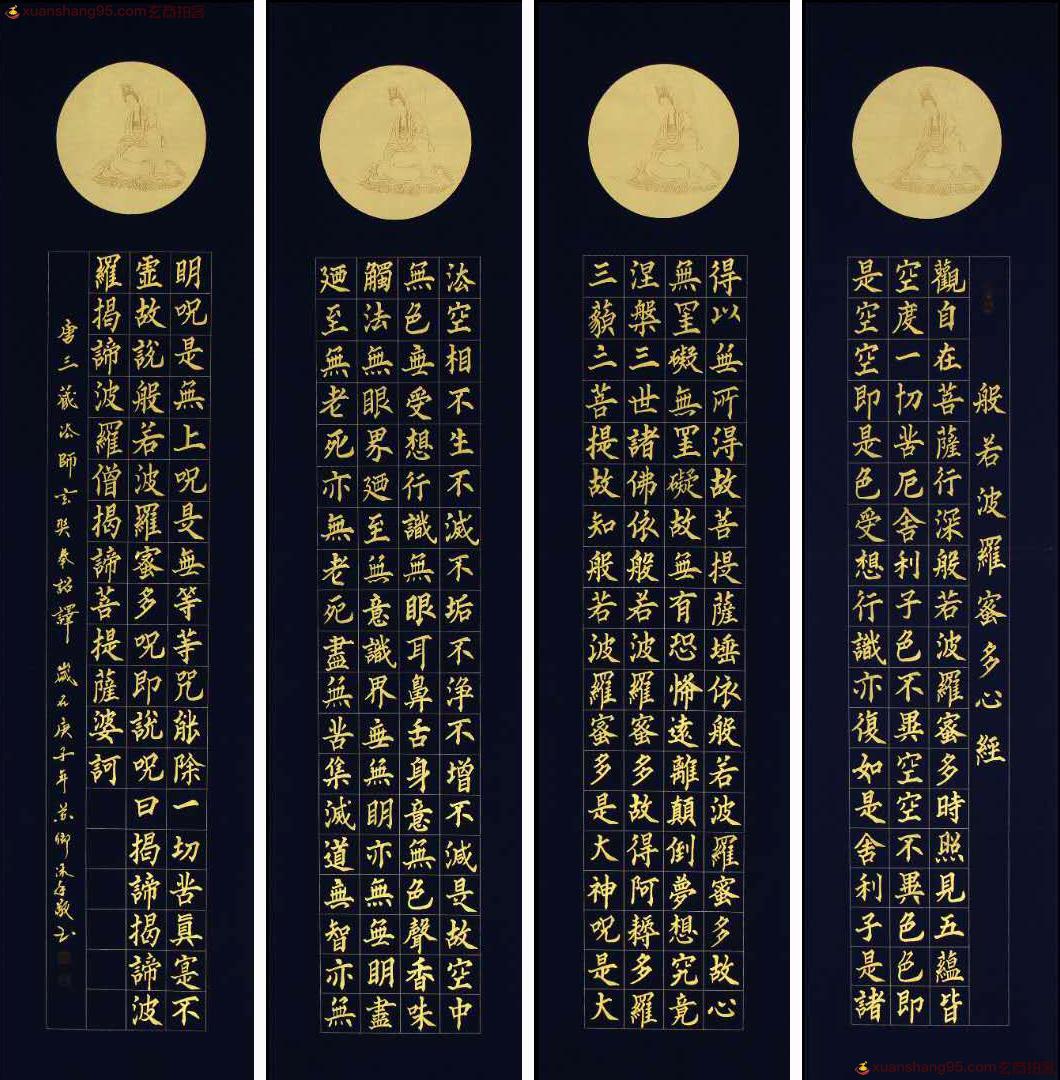 xuanshang95.com
般若波羅蜜多心經
觀自在菩薩行深般若波羅蜜多時照見五蘊皆
空度一切苦厄舍利子色不異空空不異色色即
是空空即是色受想行識亦復如是舍利子是諸
法空相不生不滅不垢不淨不增不減是故空中
無色無受想行識無眼耳鼻舌身意無色聲香味
觸法無眼界廼至無意識界無無明亦無無明盡
廼至無老死亦無老死盡無苦集滅道無智亦無
得以無所得故菩提薩埵依般若波羅蜜多故心
無罣礙無罣礙故無有恐怖遠離顛倒夢想究竟
涅槃三世諸佛依般若波羅蜜多故得阿耨多羅
三藐三菩提故知般若波羅蜜多是大神呪是大
明呪是無上呪是無等等咒能除一切苦真寔不
虛故說般若波羅蜜多呪即說呪曰揭諦揭諦波
羅揭諦波羅僧揭諦菩提薩婆訶
唐三藏法師玄奘奉詔譯 歲在庚子年蘇卿沐手敬書
xuanshang95.com